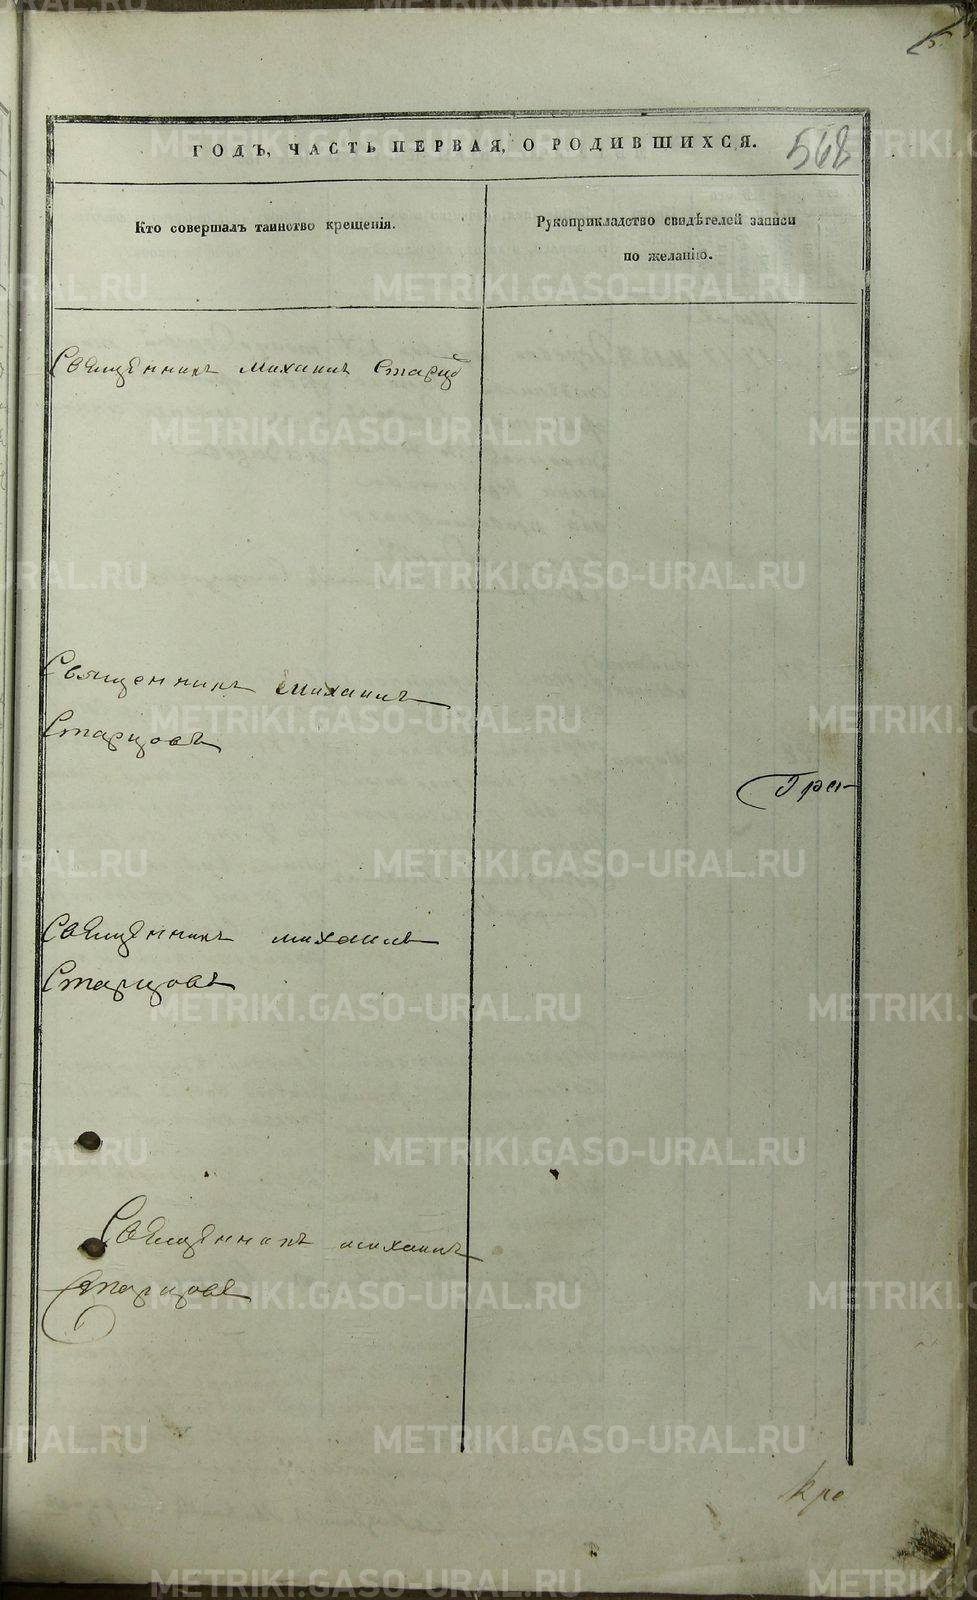 5.
568
ГОДЪ, ЧАСТЬ ПЕРВАЯ, О РОДИВШИХСЯ.
Кто совершалъ таинство крещенія.
Рукоприкладство свидѣтелей записи
по желанію.
Священникъ Михаилъ Старцо
Священникъ Михаилъ
Старцовъ
Гра-
Священникъ Михаилъ
Старцовъ
Священникъ Михаилъ
Старцовъ
кре
METRIKI.GASO-URAL.RU